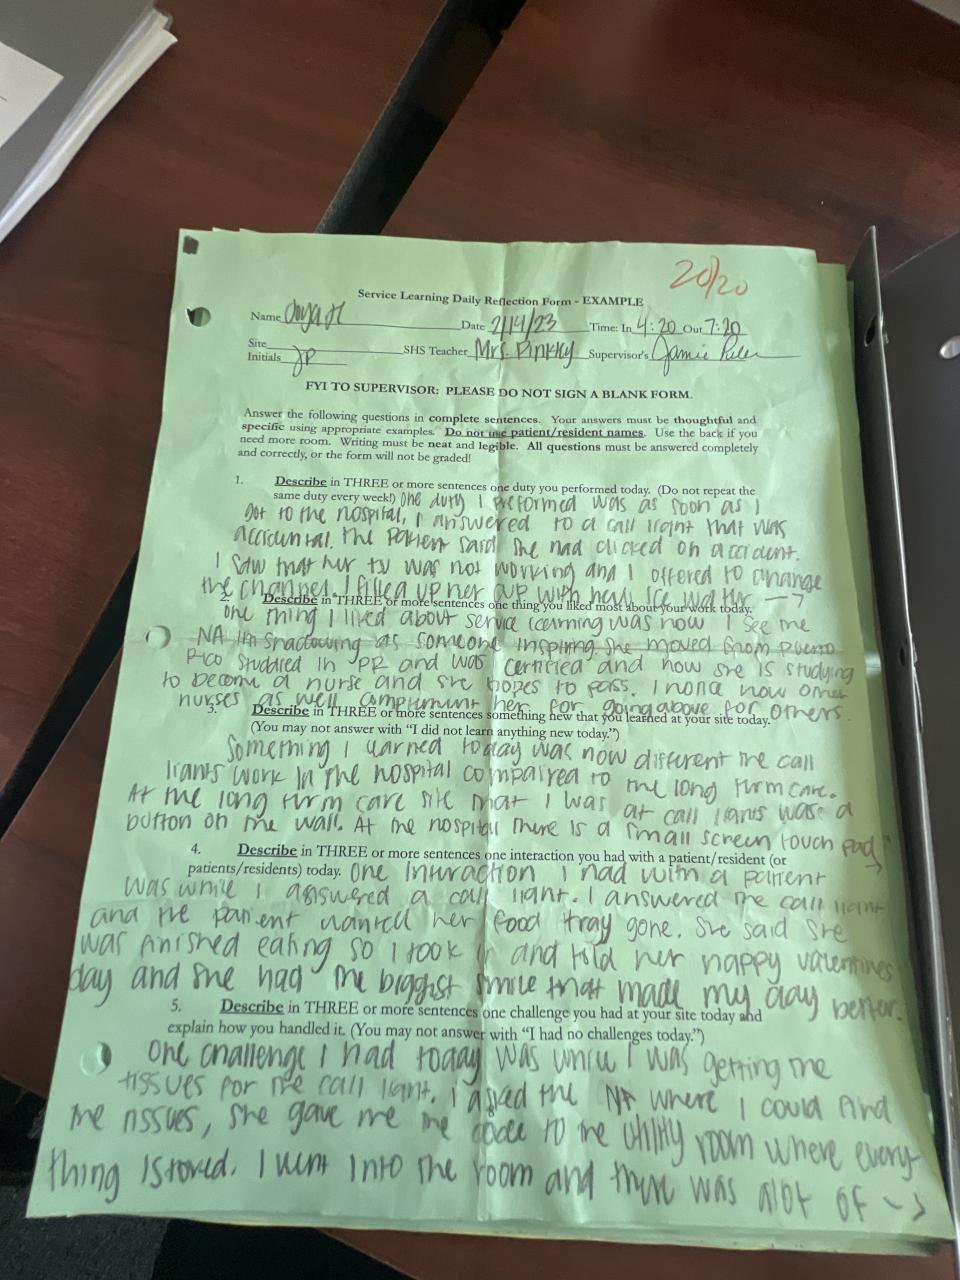 20/20
Service Learning Daily Reflection Form - EXAMPLE
Name Date 2/14/23 Time: In 4:20 Out 7:20
Site
Initials JP SHS Teacher Mrs. Supervisor's Jamie
FYI TO SUPERVISOR: PLEASE DO NOT SIGN A BLANK FORM.
Answer the following questions in complete sentences. Your answers must be thoughtful and
specific using appropriate examples. Do not use patient/resident names. Use the back if you
need more room. Writing must be neat and legible. All questions must be answered completely
and correctly, or the form will not be graded!
1. Describe in THREE or more sentences one duty you performed today. (Do not repeat the
same duty every week!) One duty I preformed was as soon as I
got to the hospital, I answered to a call light that was
accidental. The patient said she had clicked on accident.
I saw that her tv was not working and I offered to change
the channel. I filled up her cup with new ice water →
2. Describe in THREE or more sentences one thing you liked most about your work today.
one thing I liked about service learning was how I see the
NA Im shadowing as someone inspiring. She moved from Puerto
Rico studied in PR and was certified and now she is studying
to become a nurse and she hopes to pass. I how other
nurses as well compliment her for going above for others.
3. Describe in THREE or more sentences something new that you learned at your site today.
(You may not answer with "I did not learn anything new today.")
Something I learned today was how different the call
lights work in the hospital compaired to the long term care.
At the long term care site that I was at call lights was a
button on the wall. At the hospital there is a small screen touch pad →
4. Describe in THREE or more sentences one interaction you had with a patient/resident (or
patients/residents) today. One I had with a patient
was while I answered a call light. I answered the call light
and the patient wanted her food tray gone. She said she
was finished eating so I took it and told her happy valentines
day and she had the biggest smile that made my day better.
5. Describe in THREE or more sentences one challenge you had at your site today and
explain how you handled it. (You may not answer with "I had no challenges today.")
One challenge I had today was while I was getting the
tissues for the call light. I asked the NA where I could find
the tissues, she gave me the code to the utility room where every-
thing is stored. I went into the room and there was alot of ->